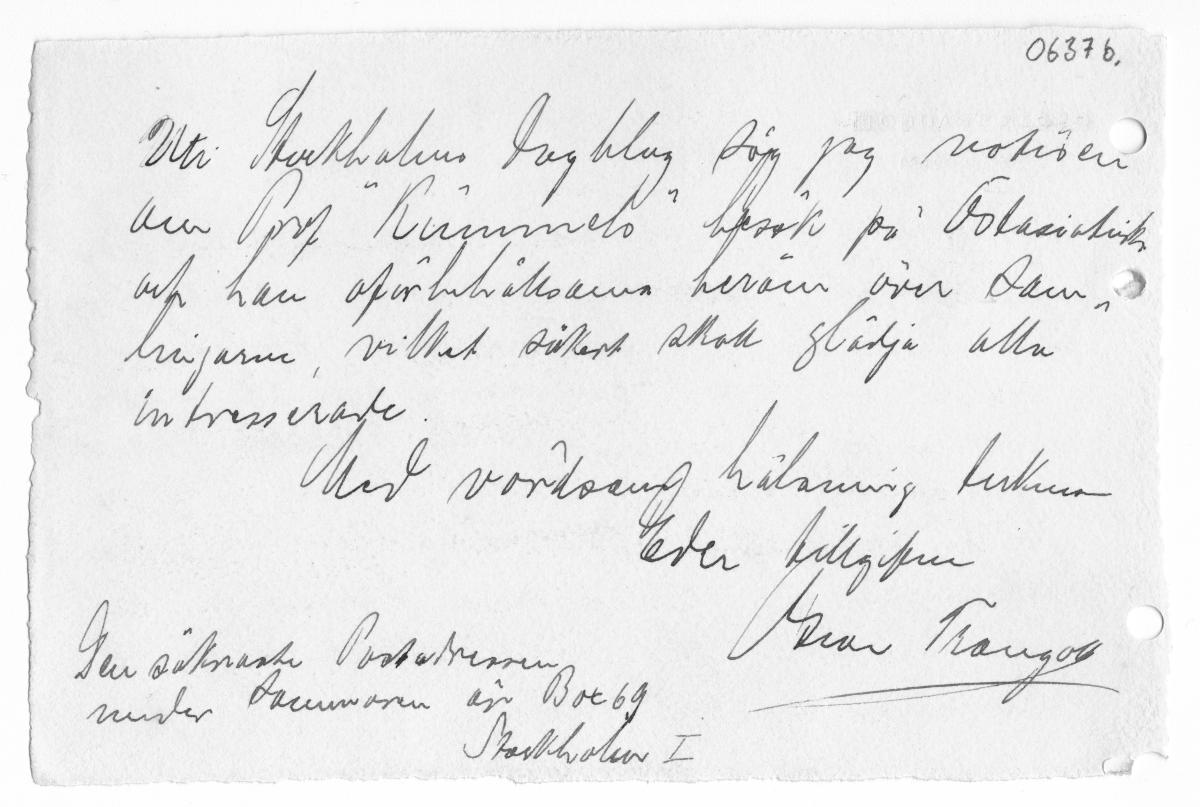 06376.
Uti Stockholms Dagblag såg jag notisen
om Prof "Kümmels" besök på Östasiatiska
och han oförbehållsamma beröm över sam-
lingarne, vilket säkert skall glädja alla
intresserade.
Med vördsam hälsning tecknar
Eder tillgifne
Oscar Trangott
Den säkraste Postadressen
under sommaren är Box 69
Stockholm I